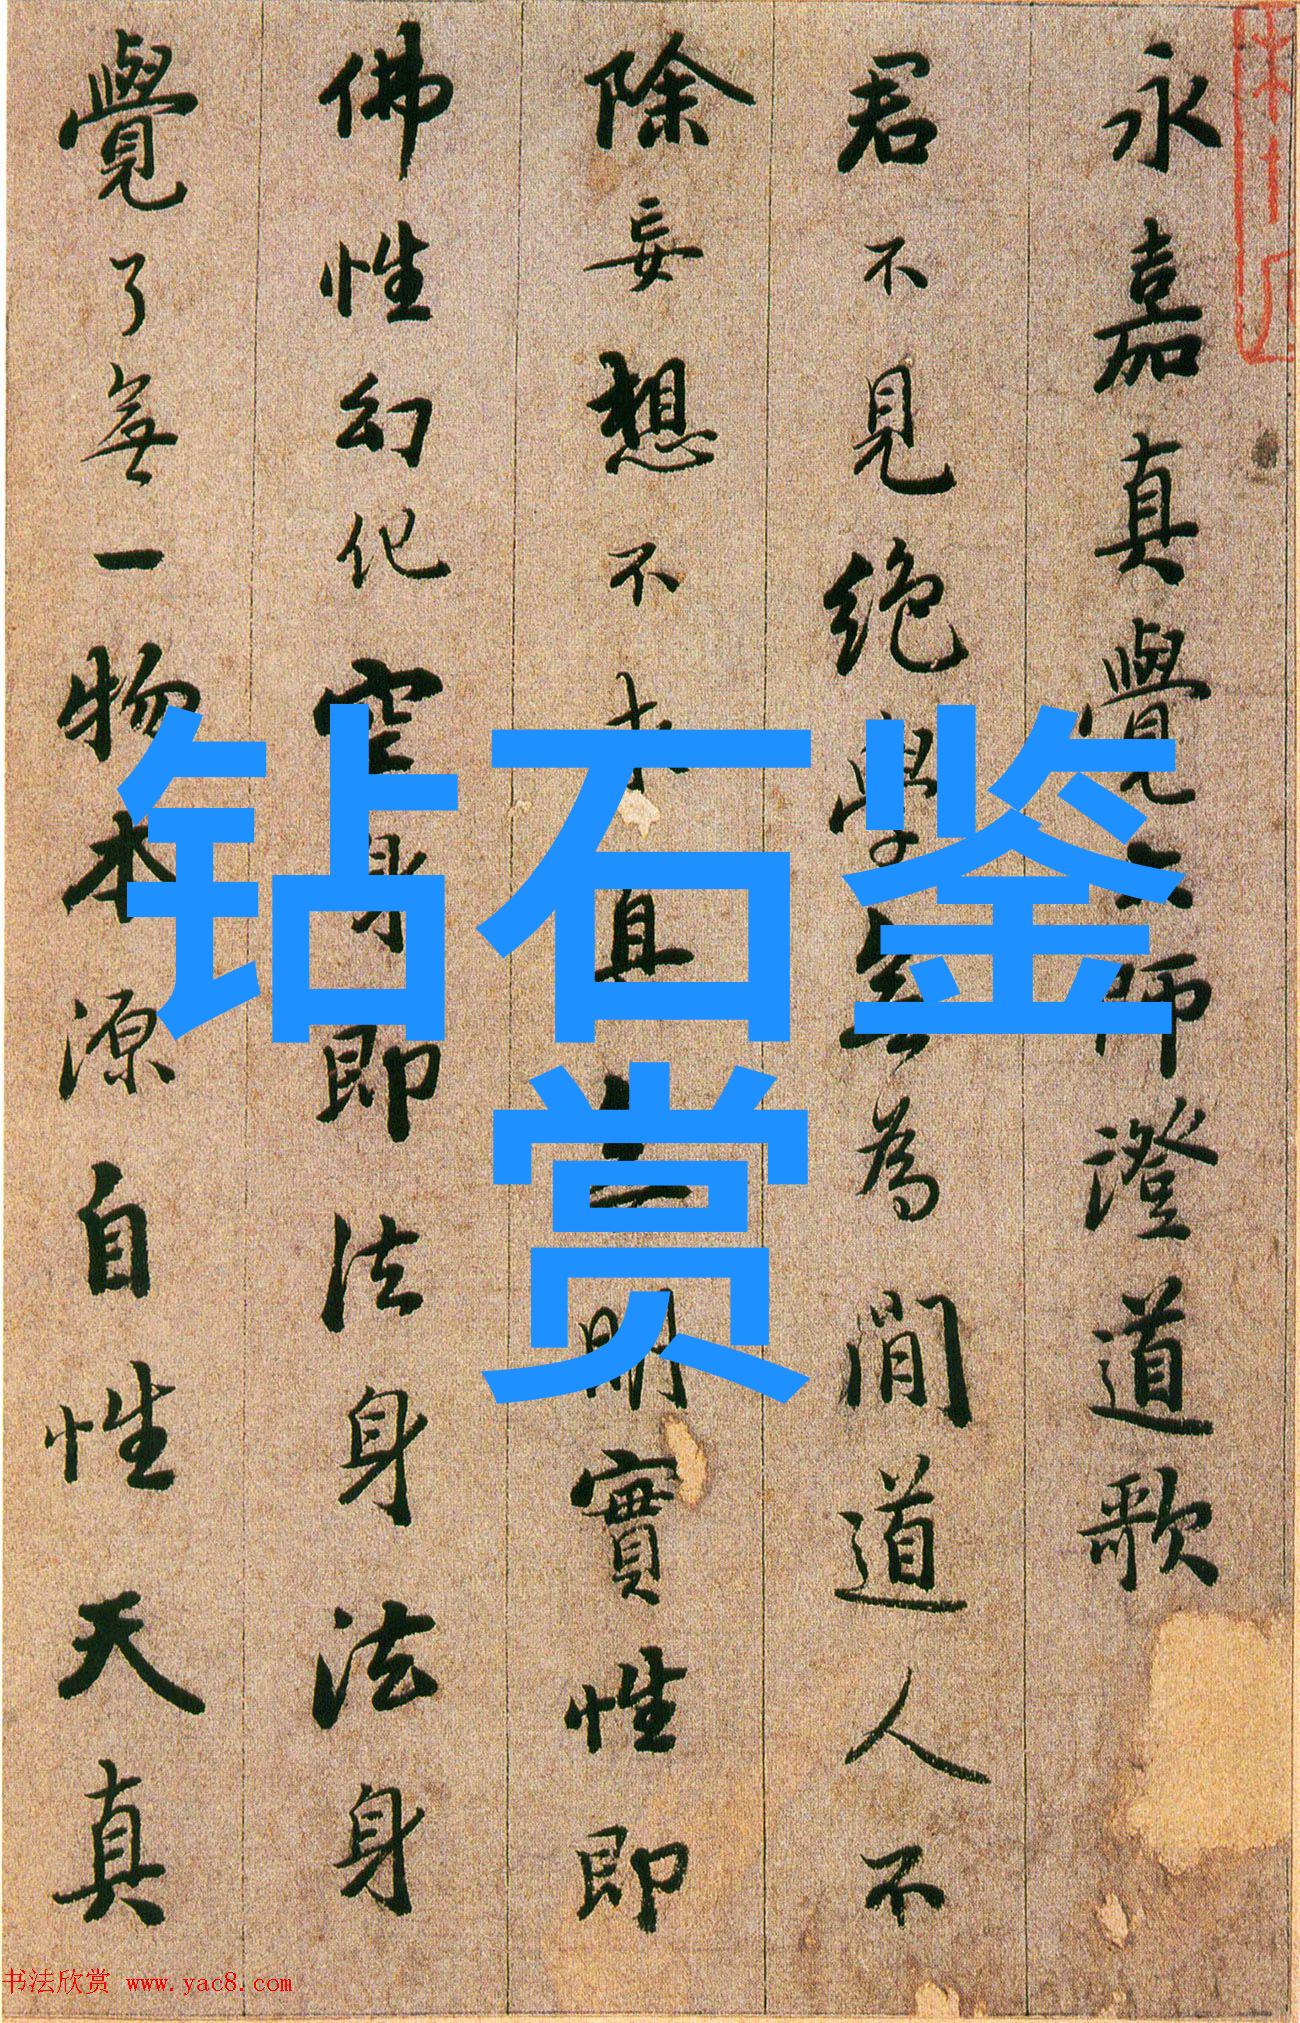 永嘉真覺大師澄道歌
君不見絕學無為閒道人不
除妄想不求真無明實性即
佛性幻化空身即法身法身
覺了無一物本源自性天真
钻石鉴
赏
书法欣赏 www.yac8.com